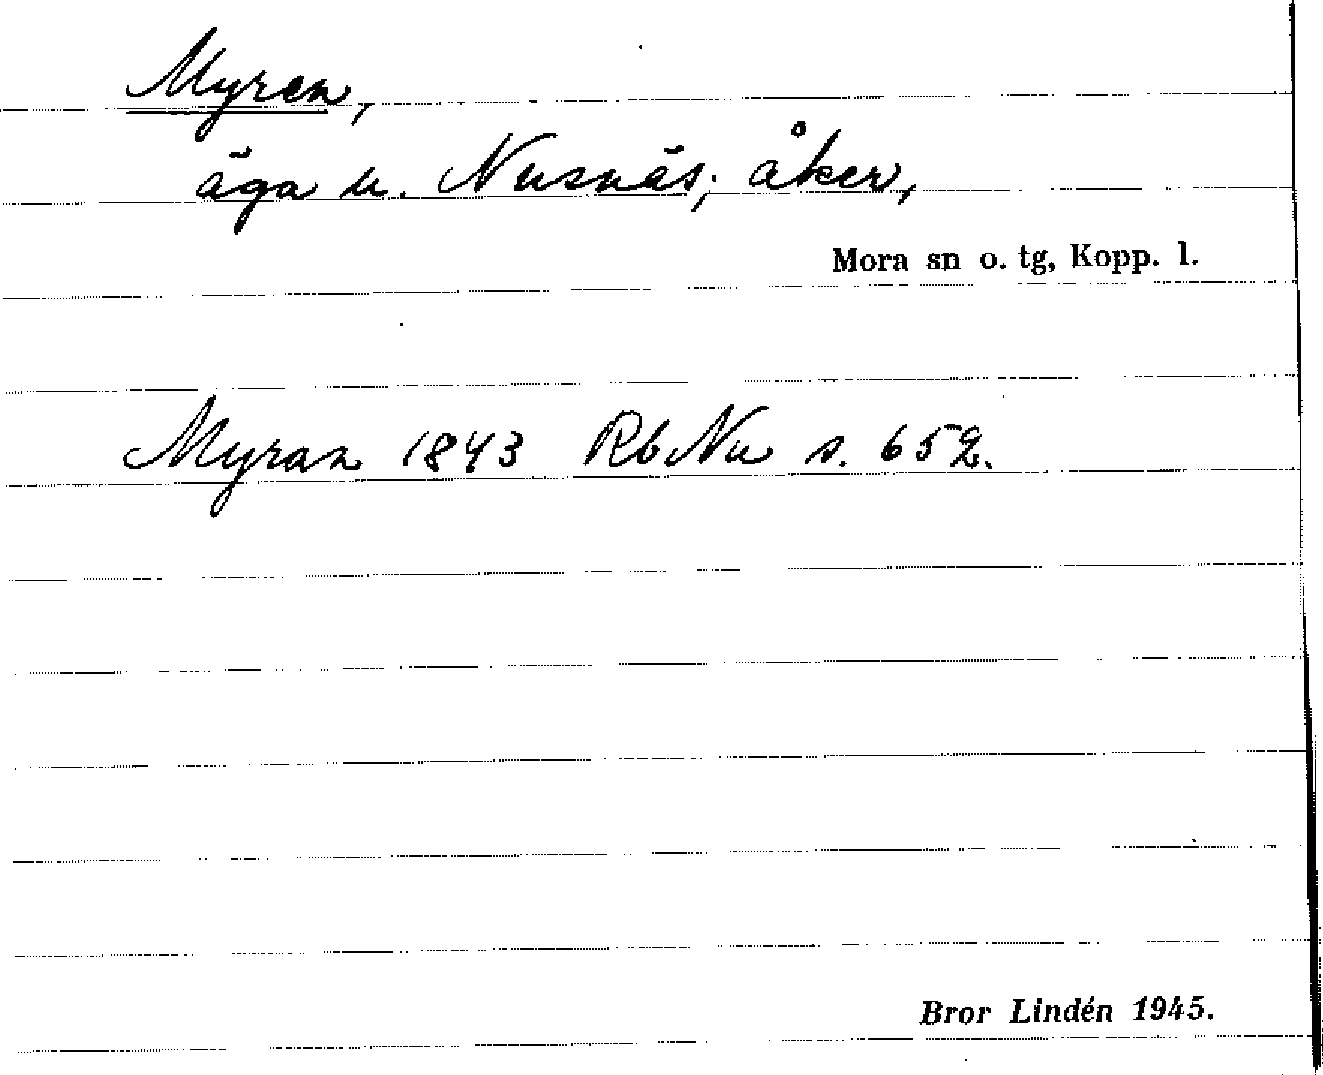 Myren,
äga u. Nusnäs; åker,
Mora sn o. tg, Kopp. l.
Myran 1843 RbNu s. 652.
Bror Lindén 1945.